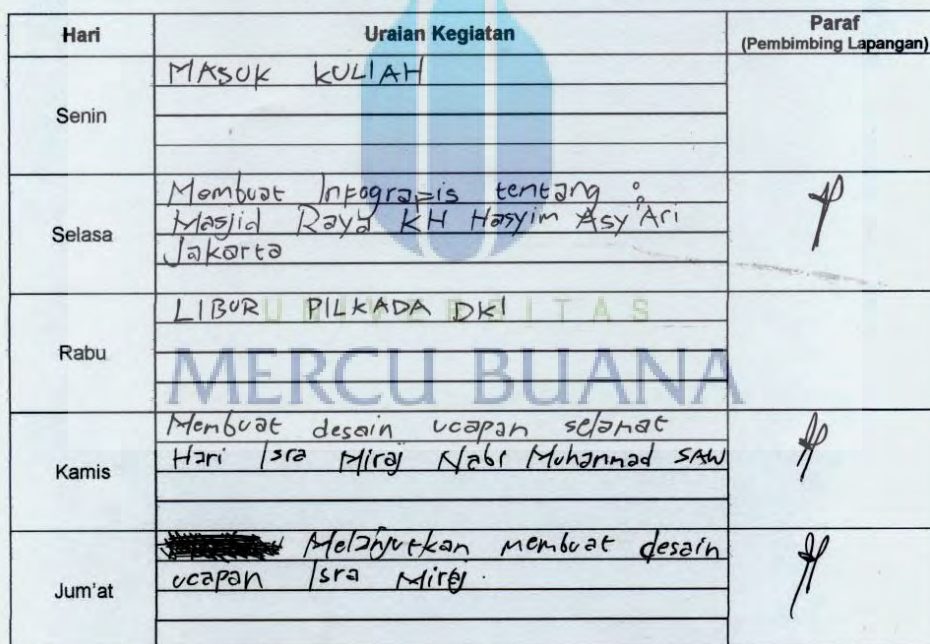 Hari Uraian Kegiatan Paraf
(Pembimbing Lapangan)
Senin
MASUK KULIAH
Selasa
Membuat Infografis tentang :
Masjid Raya KH Hasyim Asy'Ari
Jakarta
Rabu
LIBUR PILKADA DKI
UNIVERSITAS
MERCU BUANA
Kamis
Membuat desain ucapan selamat
Hari Isra Miraj Nabi Muhammad SAW
Jum'at
Melanjutkan membuat desain
ucapan Isra Miraj.